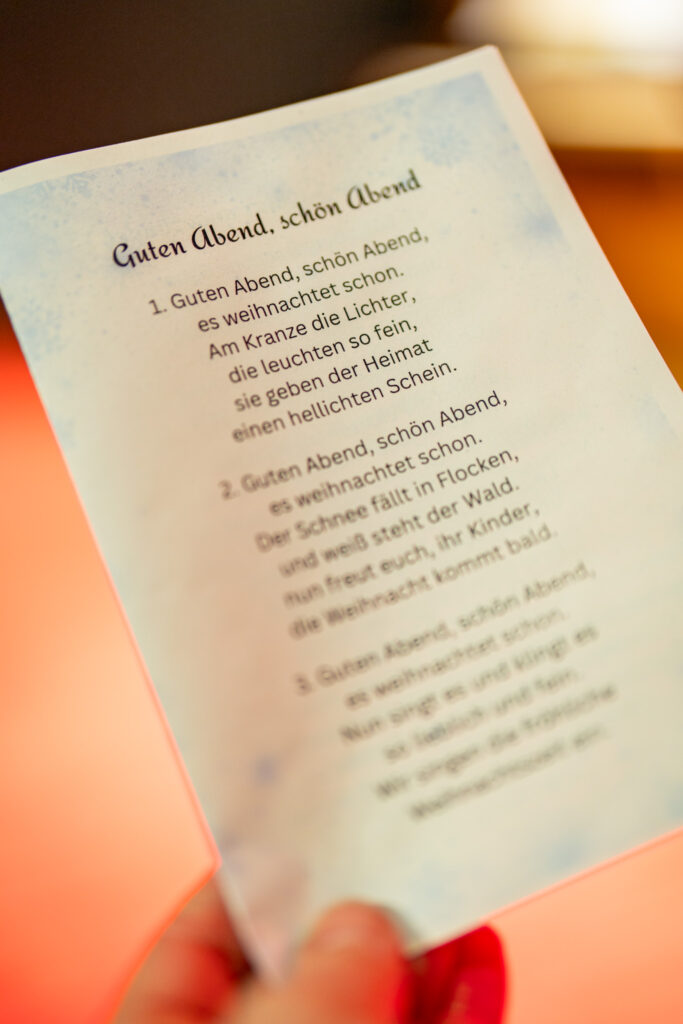 Guten Abend, schön Abend
1. Guten Abend, schön Abend,
es weihnachtet schon.
Am Kranze die Lichter,
die leuchten so fein,
sie geben der Heimat
einen hellichten Schein.
2. Guten Abend, schön Abend,
es weihnachtet schon.
Der Schnee fällt in Flocken,
und weiß steht der Wald.
nun freut euch, ihr Kinder,
die Weihnacht kommt bald.
3. Guten Abend, schön Abend,
es weihnachtet schon.
Nun singt es und klingt es
so lieblich und fein.
Wir singen die fröhliche